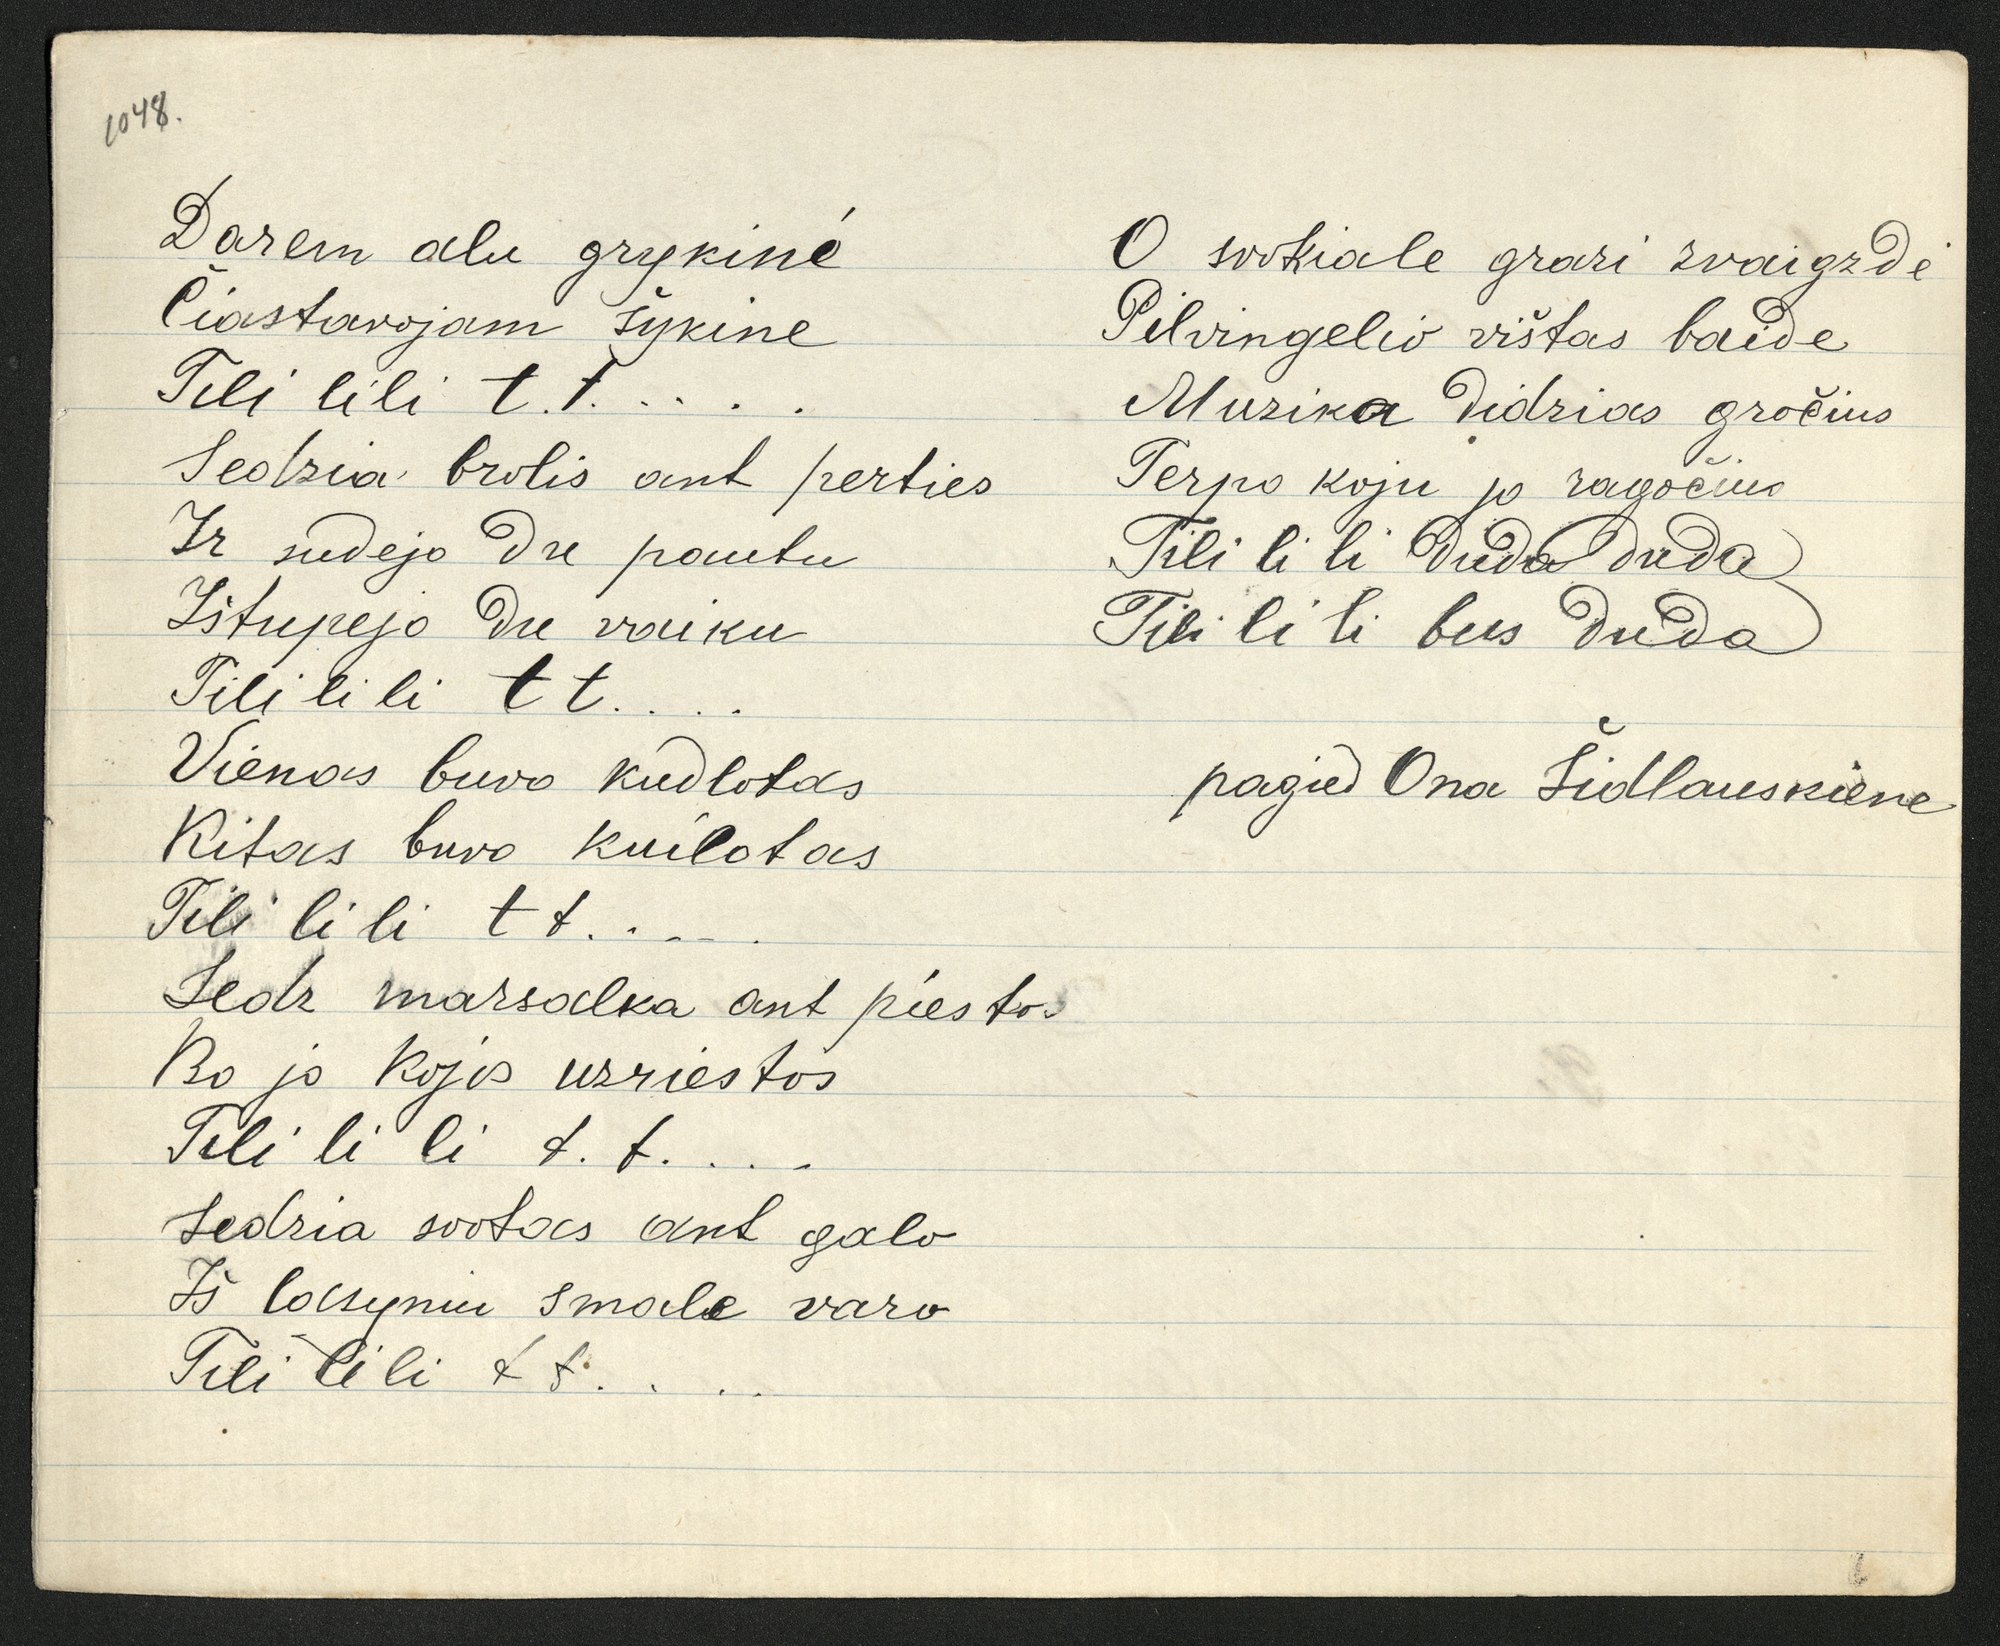 1048.
Darem alu grykinė
Čiastavojam šykine
Tili lili t.t. . . . .
Sedzia brolis ant perties
Ir sudejo du pautu
Ištupejo du vaiku
Tili li li t t. . . .
Vienas buvo kudlotas
Kitas buvo kuilotas
Tili li li t t. . . . .
Sedz marsalka ant piestos
Bo jo kojos uzriestos
Tili li li t. t. . . . .
Sedzia svotas ant galo
Iš lasyniu smala varo
Tili li li t t. . . . .
O svotkiale grazi zvaigzde
Pilvingelio vištas baide
Muzika didzias gročius
Terpo koju jo ragočius
Tili li li duda duda
Tili li li bus duda
pagied Ona Šidlauskiene